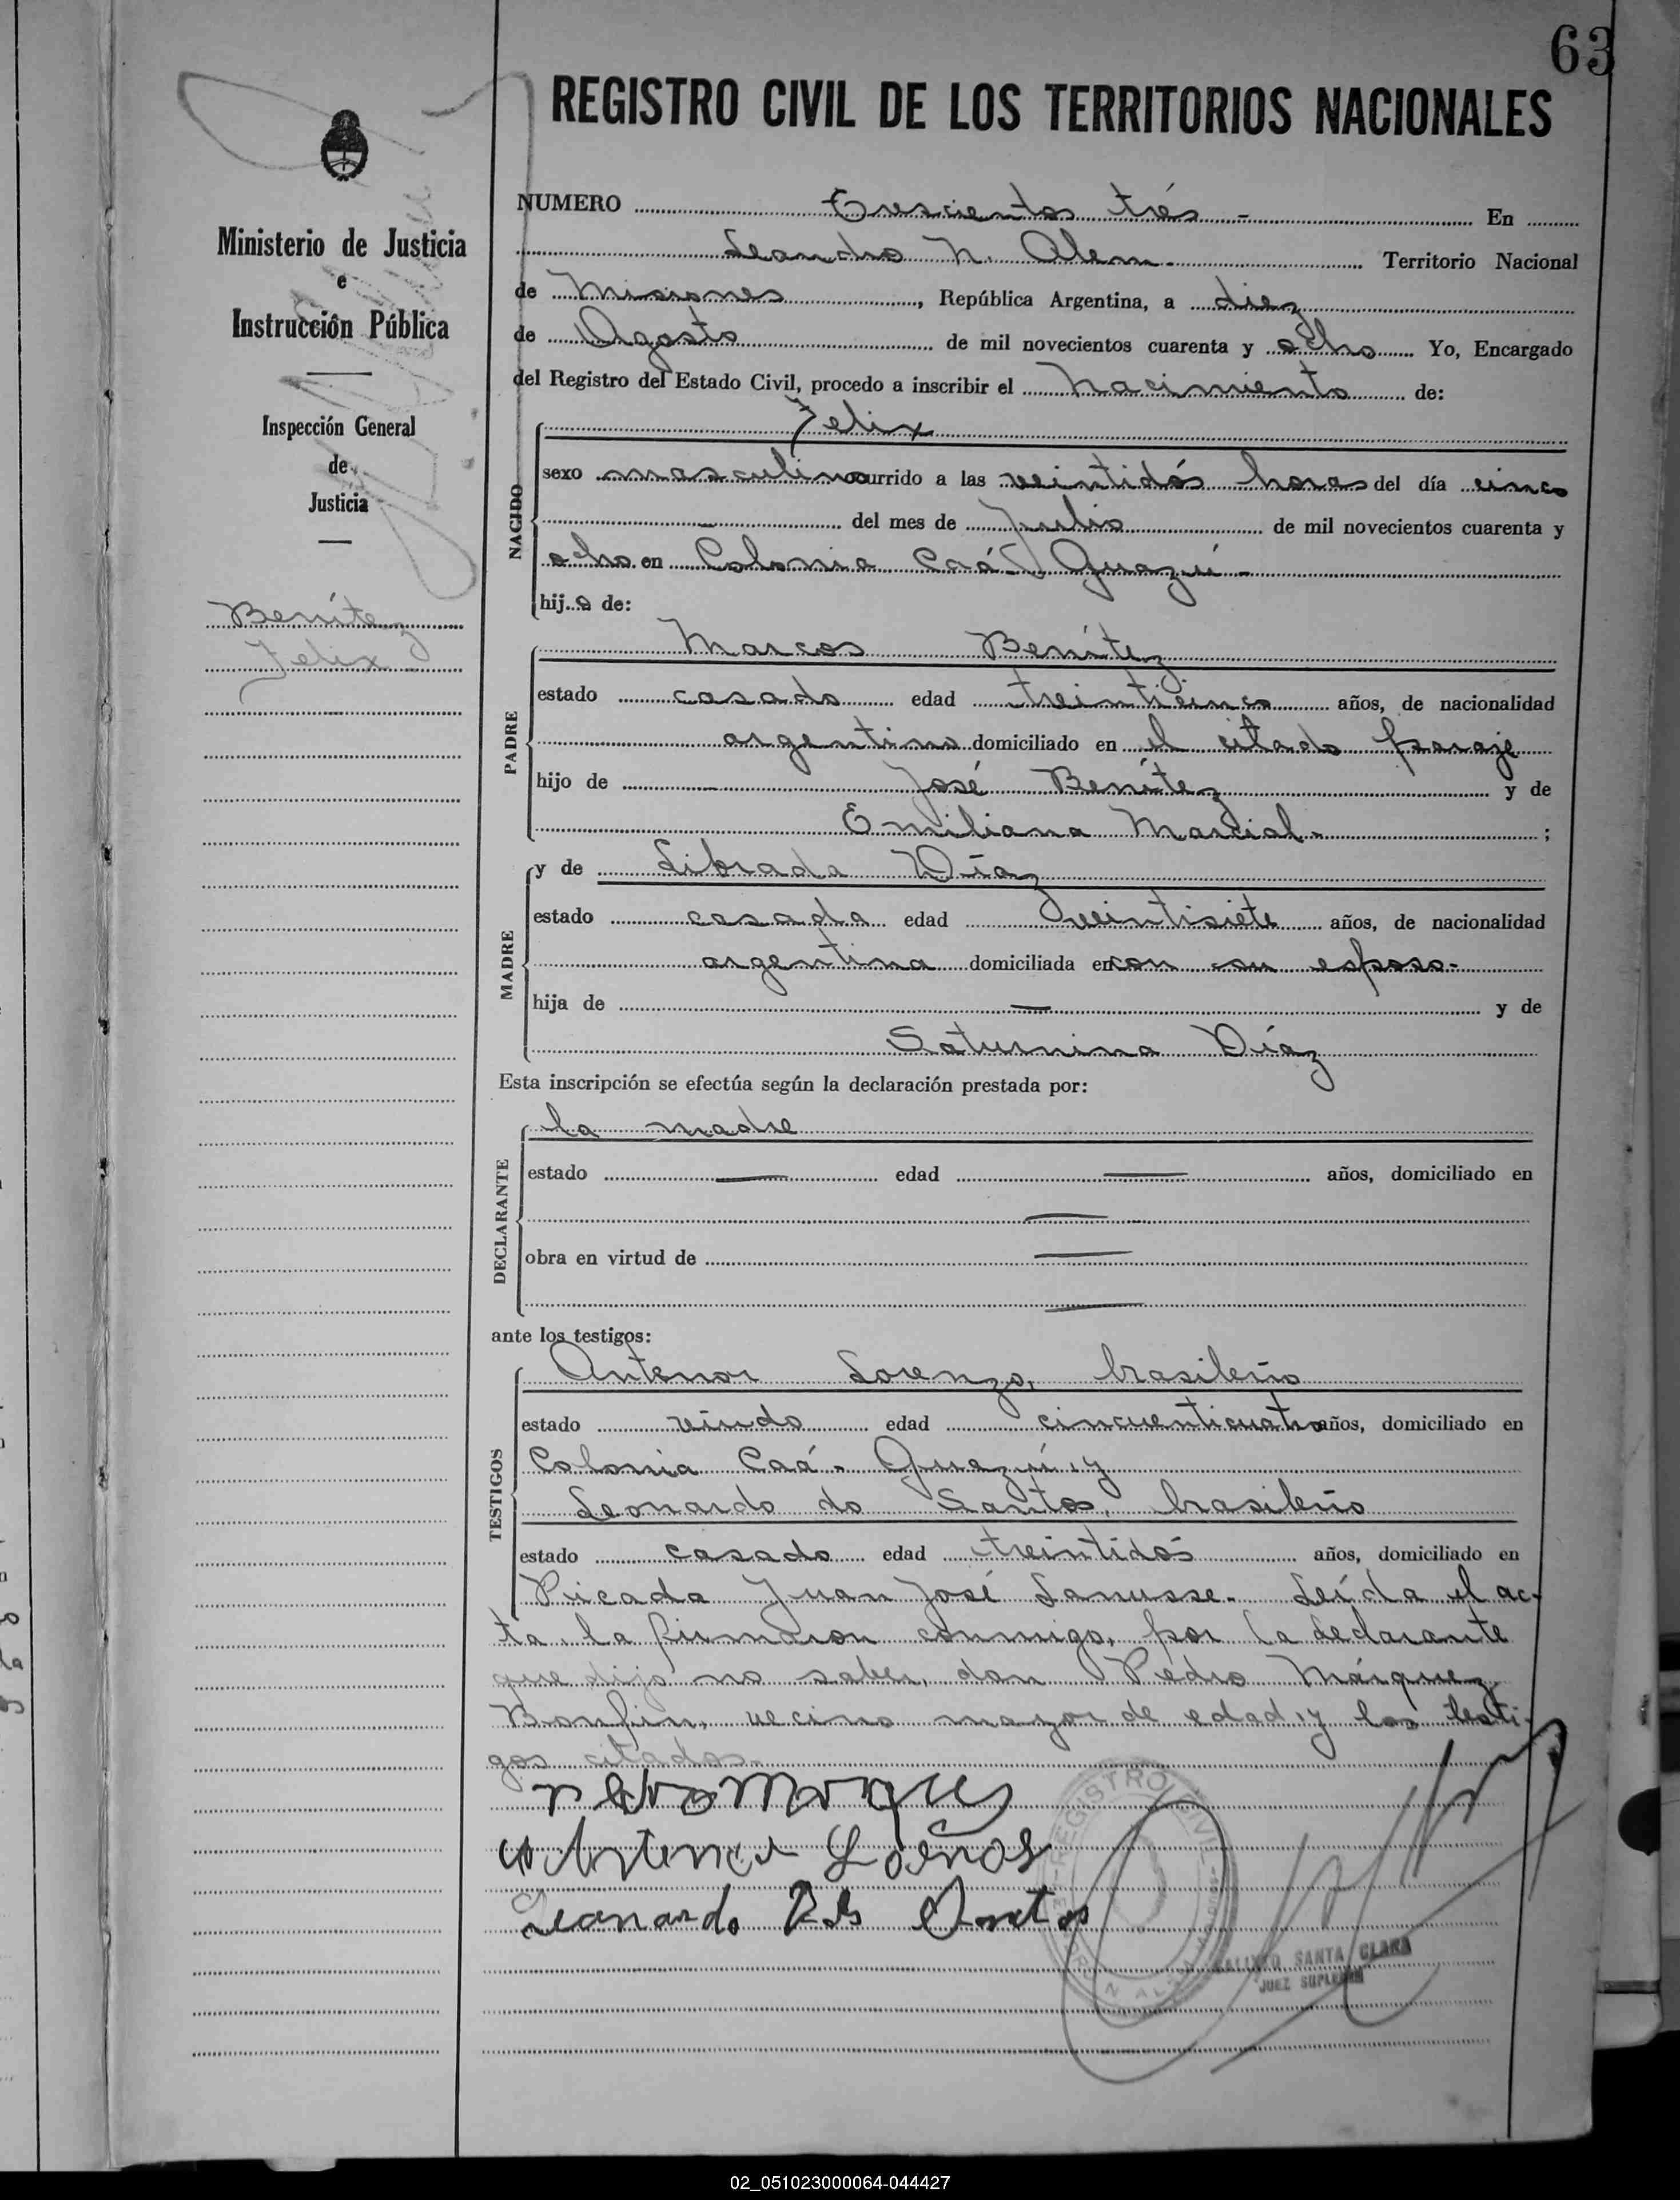 63
REGISTRO CIVIL DE LOS TERRITORIOS NACIONALES
Ministerio de Justicia
e
Instrucción Pública
Inspección General
de
Justicia
Benítez
Felix
NUMERO Trescientos trés - En
Leandro N. Alem. Territorio Nacional
de Misiones, República Argentina, a diez
de Agosto de mil novecientos cuarenta y ocho Yo, Encargado
del Registro del Estado Civil, procedo a inscribir el nacimiento de:
NACIDO
Felix
sexo masculino ocurrido a las veintidós horas del día cinco
del mes de Julio de mil novecientos cuarenta y
ocho en Colonia Caá Guazú -
hijo de:
PADRE
Marcos Benítez
estado casado edad treinticinco años, de nacionalidad
argentino domiciliado en el citado paraje
hijo de José Benítez y de
Emiliana Marcial - ;
MADRE
y de Librada Díaz
estado casada edad veintisiete años, de nacionalidad
argentina domiciliada en con su esposo -
hija de — y de
Saturnina Díaz
Esta inscripción se efectúa según la declaración prestada por:
DECLARANTE
la madre
estado — edad — años, domiciliado en
—
obra en virtud de —
—
ante los testigos:
TESTIGOS
Antenor Lorenzo, brasileño
estado viudo edad cincuenticuatro años, domiciliado en
Colonia Caá - Guazú y
Leonardo do Santos, brasileño
estado casado edad treintidós años, domiciliado en
Picada Juan José Lanusse - Leída el ac-
ta la firmaron conmigo, por la declarante
que dijo no saber, don Pedro Márquez
Bonfin, vecino mayor de edad, y los testi-
gos citados -
Leonardo Santos
REGISTRO CIVIL
SANTA CLARA
JUEZ SUPLENTE
02_051023000064-044427